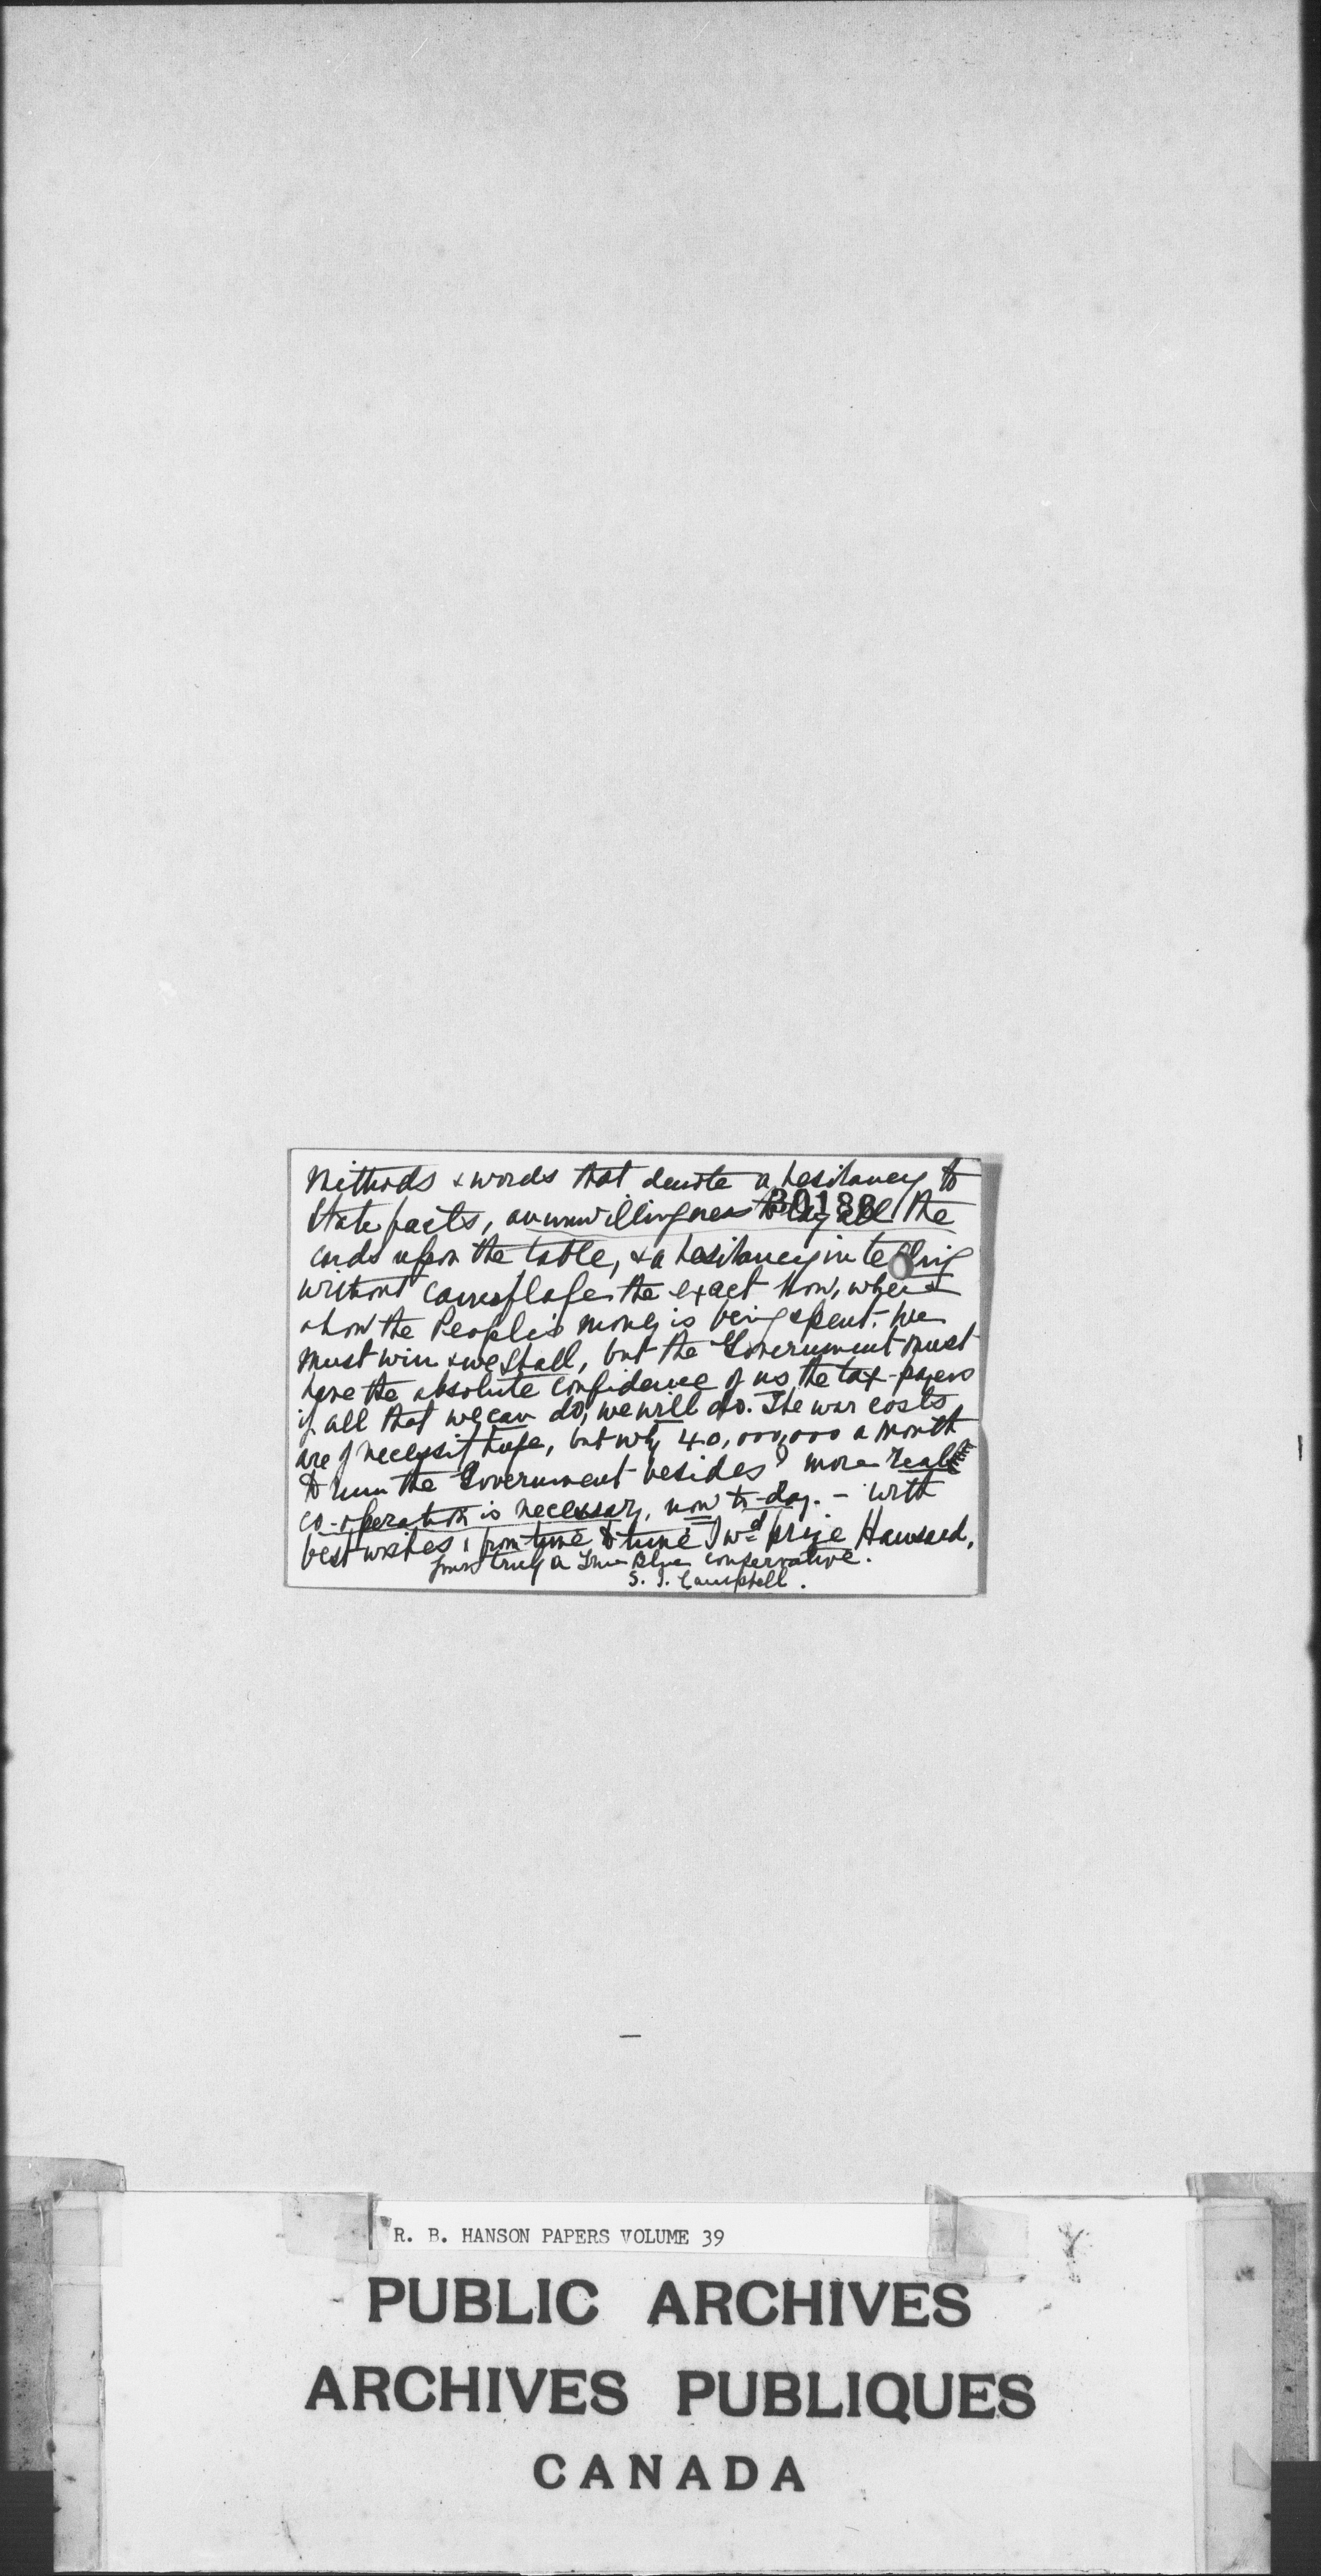 Methods & words that denote a hesitancy to
30188
State facts, an unwillingness to lay all the
cards upon the table, & a hesitancy in telling
without camouflage the exact How, when &
how the People's money is being spent. We
must win & we shall, but the Government must
have the absolute confidence of us the tax-payers
if all that we can do, we will do. The war costs
are of necessity huge, but why 40,000,000 a month
to run the Government besides? more real
co-operation is necessary, now to-day. - With
best wishes, from time to time I wd prize Hansard,
yours truly a True Blue conservative.
S. J. Campbell.
R. B. HANSON PAPERS VOLUME 39
PUBLIC ARCHIVES
ARCHIVES PUBLIQUES
CANADA